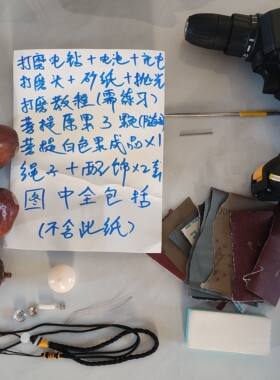 打磨电钻+电池+充电
打磨头+砂纸+抛光
打磨教程(需练习)
菩提原果3颗(随机)
菩提白色果成品×1
绳子+配饰×2套
图中全包括
(不含此纸)